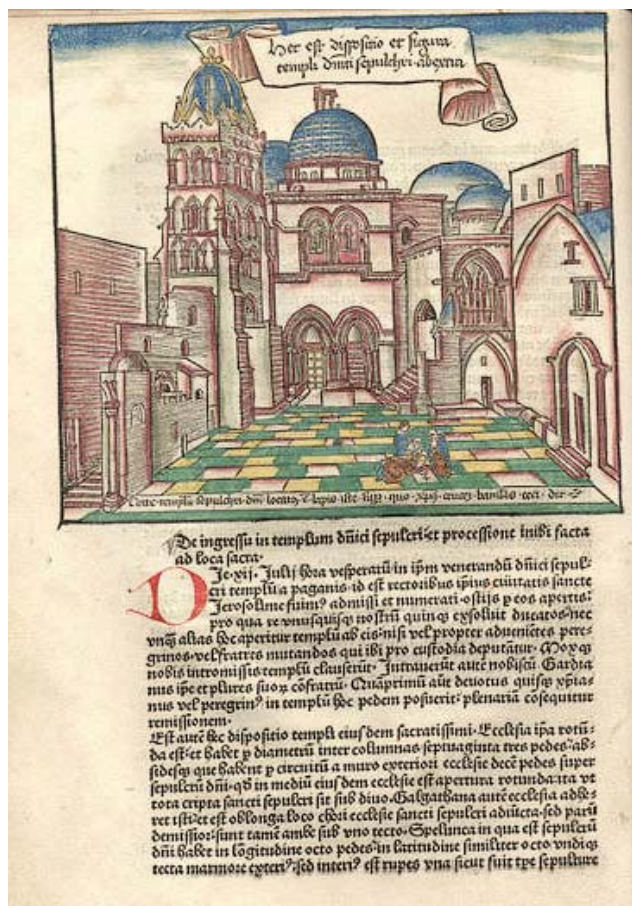 Hec est dispositio et figura
templi dn̄ici sepulchri abextra
De ingressu in templum dn̄ici sepulcri et processione inibi facta
ad loca sacra.
DJe.xij. Julij hora vesperarū in ip̄m venerandū dn̄ici sepul-
cri templū a paganis id est rectoribus ip̄ius ciuitatis sancte
Jerosolime fuimꝰ admissi et numerati ostijs ꝑ eos apertis:
pro qua re vnusquisqꝫ nostrū quinqꝫ exsoluit ducatos nec
vnqꝫ alias hoc aperitur templū ab eis nisi vel propter adueniētes pere-
grinos vel fratres mutandos qui ibi pro custodia deputātur. Moxqꝫ
nobis intromissis templū clauserūt. Intrauerūt autē nobiscū Gardia
nus ip̄e et plures suoꝝ cōfratrū. Quāprimū aūt deuotus quisqꝫ xp̄ia-
nus vel peregrinꝰ in templū hoc pedem posuerit: plenariā cōsequitur
remissionem.
Est autē hec dispositio templi eiusdem sacratissimi. Ecclesia ip̄a rotū-
da est: et habet ꝑ diametrū inter columnas septuaginta tres pedes: ab-
sides qꝫ que habent ꝑ circuitū a muro exteriori ecclesie decē pedes super
sepulcrū dn̄i qd in mediū eiusdem ecclesie est apertura rotunda ita vt
tota cripta sancti sepulcri sit sub diuo. Galgathana autē ecclesia adhe-
ret isti: et est oblonga loco chori ecclesie sancti sepulcri adiūcta sed parū
demissior: sunt tamē ambe sub vno tecto. Spelunca in qua est sepulcrū
dn̄i habet in lōgitudine octo pedes: in latitudine similiter octo vndiqꝫ
tecta marmore exteriꝰ: sed interiꝰ est rupes vna sicut fuit tꝑe sepulture